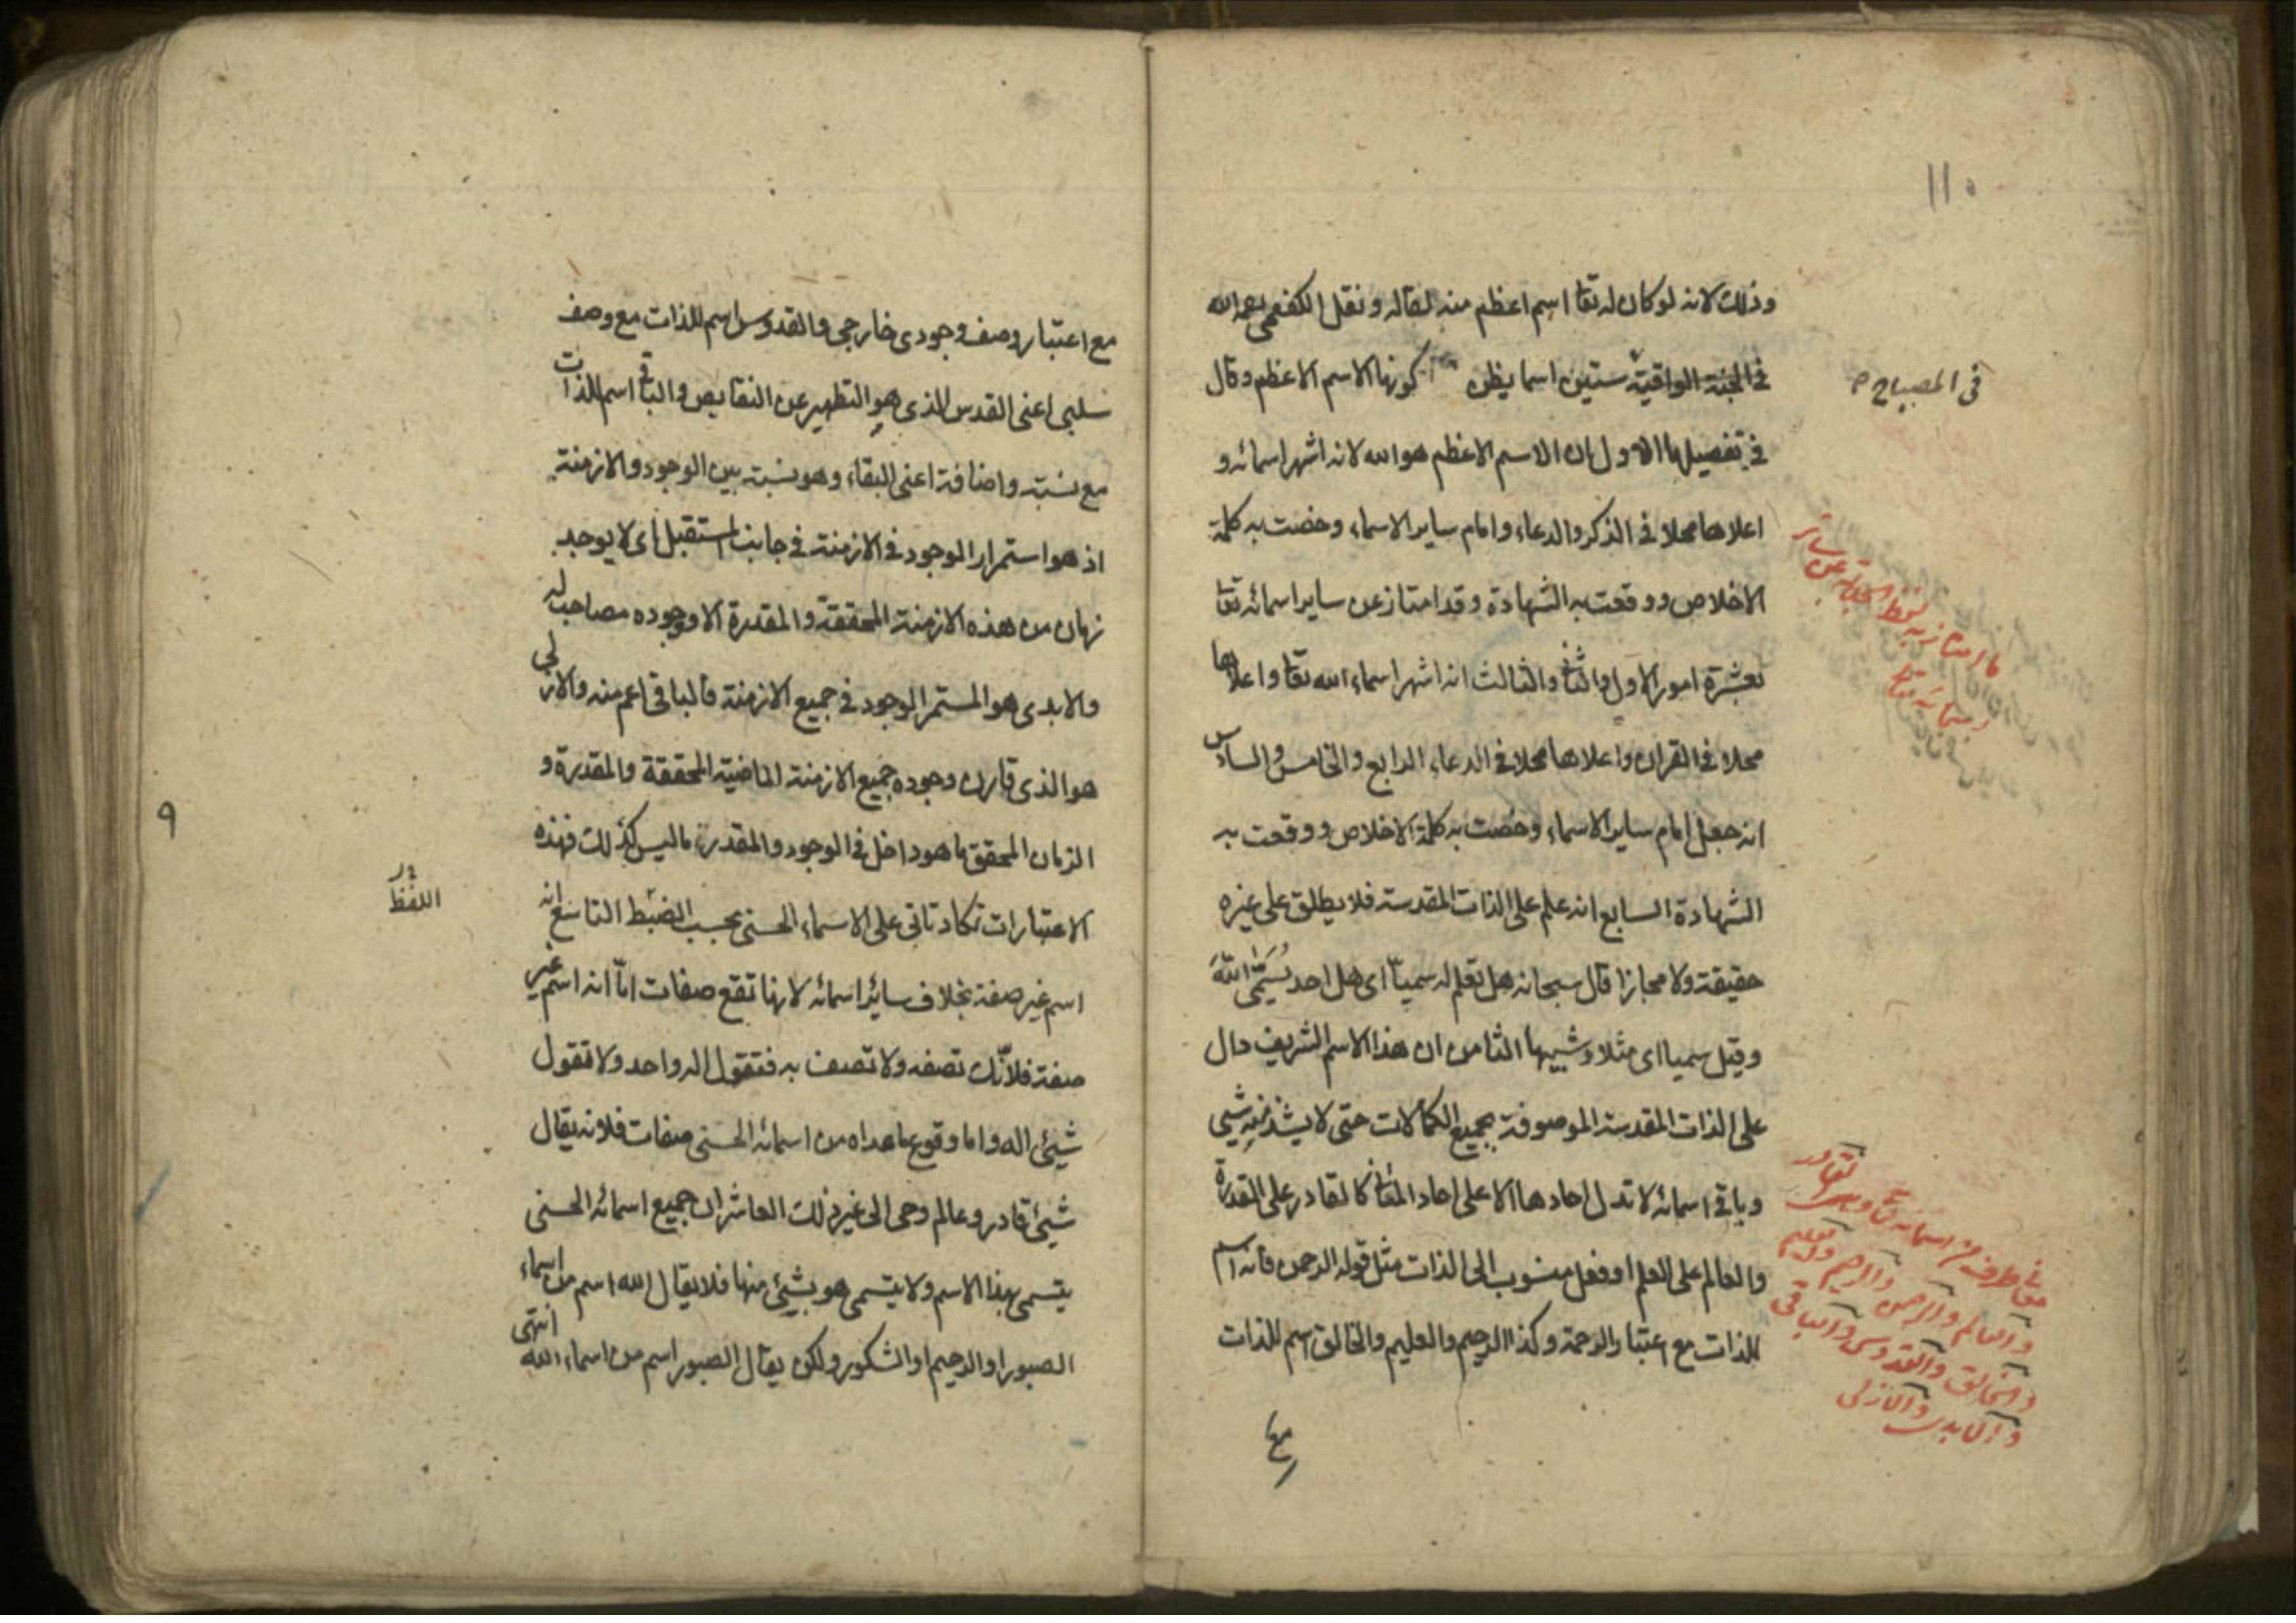 ١١٠
وذلك لانه لو كان له تعا اسم اعظم منه لقاله ونقل الكفعمي رحمه الله
في الجنة الواقية ستين اسما يظن كونها الاسم الاعظم وقال
في المصباح م
في تفصيلها الاول ان الاسم الاعظم هو الله لانه اشهر اسمائه و
اعلاها محلا في الذكر والدعاء وامام ساير الاسماء وخصت به كلمة
الاخلاص ووقعت به الشهادة وقد امتاز عن ساير اسمائه تعا
ما امتاز به لفظ الجلالة عن سائر
اسمائه تعا
بعشرة امور الاول والثاني والثالث انه اشهر اسماء الله تعا واعلاها
محلا في القران واعلاها محلا في الدعاء الرابع والخامس والسادس
انه جعل امام ساير الاسماء وخصت به كلمة الاخلاص ووقعت به
الشهادة السابع انه علم على الذات المقدسة فلا يطلق على غيره
حقيقة ولا مجازا قال سبحانه هل تعلم له سميا اى هل احد يُسَمّى اللهَ
وقيل سميا اى مثلا وشبيها الثامن ان هذا الاسم الشريف دال
على الذات المقدسة الموصوفة بجميع الكمالات حتى لا يشذ منه شيئ
وباقي اسمائه لا تدل احادها الا على احاد المعاني كالقادر على القدرة
والعالم على العلم او فعل منسوب الى الذات مثل قوله الرحمن فانه اسم
للذات مع اعتبار الرحمة وكذا الرحيم والعليم والخالق اسم للذات
معاني طرف من اسمائه تعا وهى القادر
والعالم والرحمن والرحيم والعليم
والخالق والقدوس والباقي
والابدى والازلى
مع
مع اعتبار وصف وجودى خارجى والقدوس اسم للذات مع وصف
سلبى اعنى القدس الذى هو التطهير عن النقايص والباقي اسم للذات
مع نسبة واضافة اعنى البقاء وهو نسبة بين الوجود والازمنة
اذ هو استمرار الموجود في الازمنة في جانب المستقبل اى لا يوجد
زمان من هذه الازمنة المحققة والمقدرة الا ووجوده مصاحب له
والابدى هو المستمر الوجود في جميع الازمنة فالباقي اعم منه والازلى
هو الذى قارن وجوده جميع الازمنة الماضية المحققة والمقدرة و
الزمان المحقق ما هو داخل في الوجود والمقدر ما ليس كذلك فهذه
الاعتبارات تكاد تاتى على الاسماء الحسنى بحسب الضبط التاسع انه
اللفظ
٩
اسم غير صفة بخلاف سائر اسمائه لانها تقع صفات امّا انه اسم غير
صفة فلانّك تصفه ولا تصف به فتقول اله واحد ولا تقول
شيئ اله واما وقوع ما عداه من اسمائه الحسنى صفات فلانه يقال
شيئ قادر وعالم وحى الى غير ذلك العاشر ان جميع اسمائه الحسنى
يتسمى بهذا الاسم ولا يتسمى هو بشيئ منها فلا يقال الله اسم من اسماء
الصبور او الرحيم او الشكور ولكن يقال الصبور اسم من اسماء الله انتهى